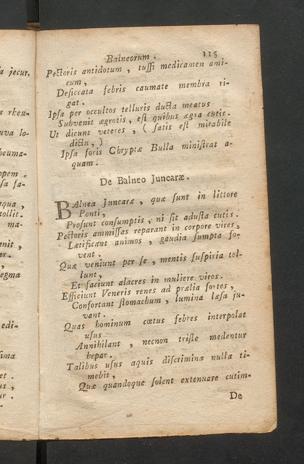 Balneorum. 115
Pectoris antidotum, tussi medicamen ami-
cum,
Desiccata febris caumate membra ri-
gat.
Ipsa per occultos telluris ducta meatus
Subvenit ægrotis, est quibus ægra cutis.
Ut dicunt veteres, (satis est mirabile
dictu,)
Ipsa foris Chryptæ Bulla ministrat a-
quam.
De Balneo Juncaræ.
Balnea Juncaræ, quæ sunt in littore
Ponti,
Prosunt consumptis, ni sit adusta cutis.
Pectoris ammissas reparant in corpore vires,
Lætificant animos, gaudia sumpta fo-
vent.
Quæ veniunt per se, mentis suspiria tol-
lunt,
Et faciunt alacres in muliere viros.
Efficiunt Veneris renes ad prælia fortes,
Confortant stomachum, lumina læsa ju-
vant.
Quas hominum cœtus febres interpolat
usus
Annihilant, necnon triste medentur
hepar.
Talibus usus aquis discrimina nulla ti-
mebit,
Quæ quandoque solent extenuare cutim.
De
a jecur,
s rheu-
uva lo-
heuma-
opem
sa fa-
tollit.
ma-
enit,
er.
egma
edi-
sima
et